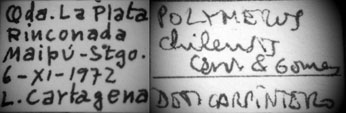 Qda. La Plata
Rinconada
Maipú-Stgo.
6-XI-1972
L. Cartagena
POLYMERUS
chilensis
Carv & Gomes
DET: CARPINTERO